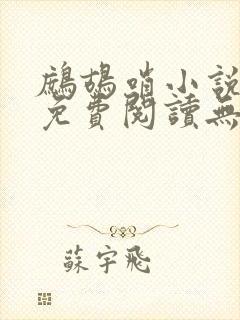 鷓鴣哨小說
免費閱讀無
蘇宇飛